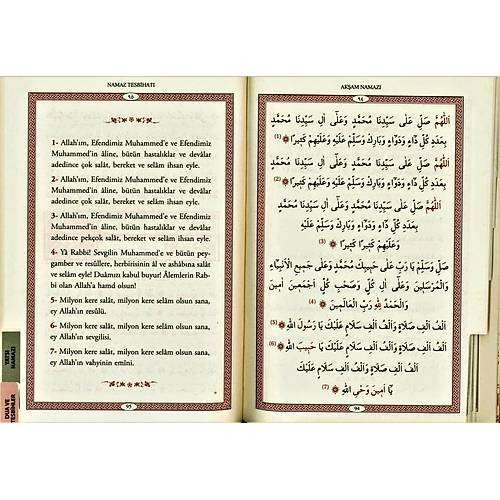 NAMAZ TESBİHATI
٩٥
1- Allah'ım, Efendimiz Muhammed'e ve Efendimiz
Muhammed'in âline, bütün hastalıklar ve devâlar
adedince çok salât, bereket ve selâm ihsan eyle.
2- Allah'ım, Efendimiz Muhammed'e ve Efendimiz
Muhammed'in âline, bütün hastalıklar ve devâlar
adedince çok salât, bereket ve selâm ihsan eyle.
3- Allah'ım, Efendimiz Muhammed'e ve Efendimiz
Muhammed'in âline, bütün hastalıklar ve devâlar
adedince pekçok salât, bereket ve selâm ihsan eyle.
4- Yâ Rabbi! Sevgilin Muhammed'e ve bütün pey-
gamber ve resüllere, herbirisinin âl ve ashâbına salât
ve selâm eyle! Duâmızı kabul buyur! Âlemlerin Rab-
bi olan Allah'a hamd olsun!
5- Milyon kere salât, milyon kere selâm olsun sana,
ey Allah'ın resûlü.
6- Milyon kere salât, milyon kere selâm olsun sana,
ey Allah'ın sevgilisi.
7- Milyon kere salât, milyon kere selâm olsun sana,
ey Allah'ın vahyinin emîni.
95
YATSI
NAMAZI
DUA VE
TESBİHLER
AKŞAM NAMAZI
٩٤
اَللّٰهُمَّ صَلِّ عَلٰى سَيِّدِنَا مُحَمَّدٍ وَعَلٰٓى اٰلِ سَيِّدِنَا مُحَمَّدٍ
بِعَدَدِ كُلِّ دَٓاءٍ وَدَوَٓاءٍ وَبَارِكْ وَسَلِّمْ عَلَيْهِ وَعَلَيْهِمْ كَثِيرًا (1)
اَللّٰهُمَّ صَلِّ عَلٰى سَيِّدِنَا مُحَمَّدٍ وَعَلٰٓى اٰلِ سَيِّدِنَا مُحَمَّدٍ
بِعَدَدِ كُلِّ دَٓاءٍ وَدَوَٓاءٍ وَبَارِكْ وَسَلِّمْ عَلَيْهِ وَعَلَيْهِمْ كَثِيرًا (2)
اَللّٰهُمَّ صَلِّ عَلٰى سَيِّدِنَا مُحَمَّدٍ وَعَلٰٓى اٰلِ سَيِّدِنَا مُحَمَّدٍ
بِعَدَدِ كُلِّ دَٓاءٍ وَدَوَٓاءٍ وَبَارِكْ وَسَلِّمْ عَلَيْهِ
وَعَلَيْهِمْ كَثِيرًا كَثِيرًا (3)
صَلِّ وَسَلِّمْ يَا رَبِّ عَلٰى حَبِيبِكَ مُحَمَّدٍ وَعَلٰى جَمِيعِ الْاَنْبِيَٓاءِ
وَالْمُرْسَلِينَ وَعَلٰٓى اٰلِ كُلٍّ وَصَحْبِ كُلٍّ اَجْمَعِينَ اٰمِينَ
وَالْحَمْدُ لِلّٰهِ رَبِّ الْعَالَمِينَ (4)
اَلْفُ اَلْفِ صَلَاةٍ وَاَلْفُ اَلْفِ سَلَامٍ عَلَيْكَ يَا رَسُولَ اللّٰهِ (5)
اَلْفُ اَلْفِ صَلَاةٍ وَاَلْفُ اَلْفِ سَلَامٍ عَلَيْكَ يَا حَبِيبَ اللّٰهِ (6)
اَلْفُ اَلْفِ صَلَاةٍ وَاَلْفُ اَلْفِ سَلَامٍ عَلَيْكَ
يَٓا اَمِينَ وَحْيِ اللّٰهِ (7)
94